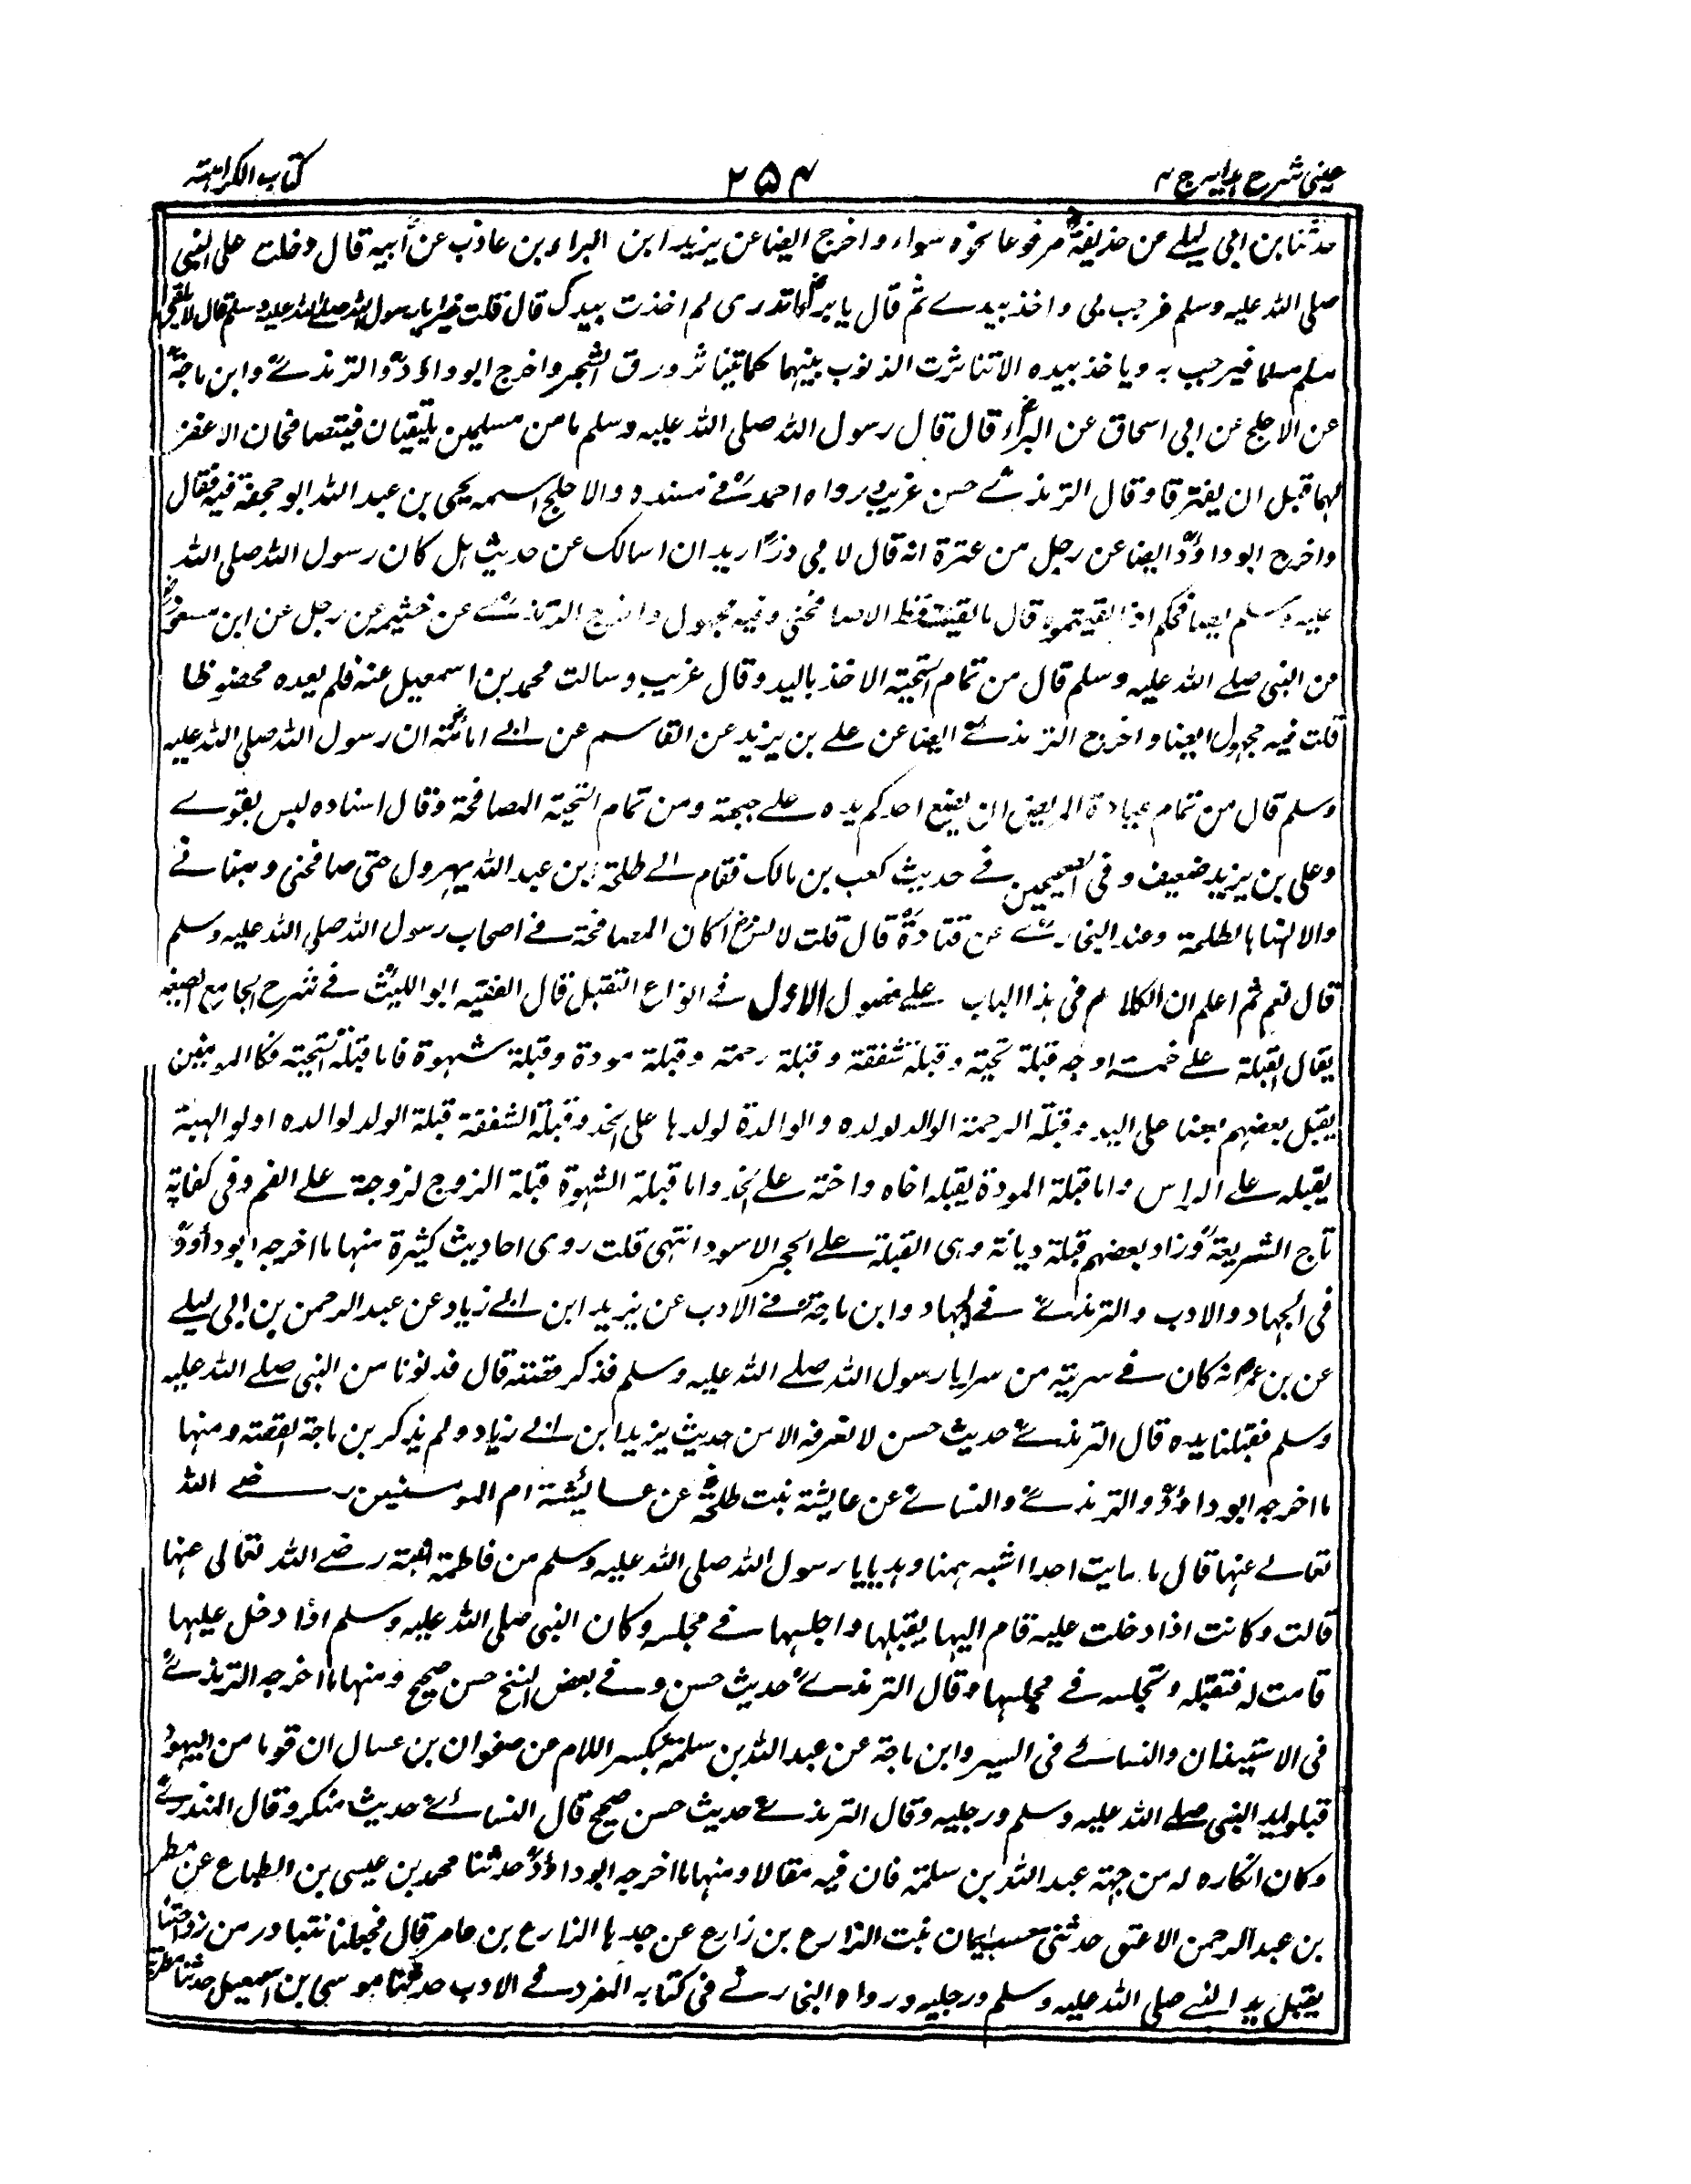 عينى شرح هدايہ ج ۴
۲۵۴
كتاب الكراهية
حدثنا بن ابى ليلے عن حذيفةؓ مرفوعا نحوه سواء واخرج ايضا عن يزيد ابن البراء بن عاذب عن أبيه قال دخلت على النبى
صلى الله عليه وسلم فرحب بى واخذ بيدے ثم قال يا براء اتدرى لم اخذت بيدك قال قلت خيرا يا رسول الله صلى الله عليه وسلم قال لا يلقى
مسلم مسلما فيرحب به وياخذ بيده الا تناثرت الذنوب بينهما كما يتناثر ورق الشجر واخرج ابو داؤدؒ والترمذےؒ وابن ماجةؒ
عن الاجلح عن ابى اسحاق عن البراءؓ قال قال رسول الله صلى الله عليه وسلم ما من مسلمين يلتقيان فيتصافحان الا غفر
لهما قبل ان يفترقا وقال الترمذےؒ حسن غريب ورواه احمدؒ فے مسنده والاجلح اسمه يحيى بن عبد الله ابو حجفة فيه فقال
واخرج ابو داؤدؒ ايضا عن رجل من عنزة انه قال لابى ذرؓ اريد ان اسالك عن حديث هل كان رسول الله صلى الله
عليه وسلم يصافحكم اذا لقيتموه قال ما لقيته قط الا صافحنى وفيه مجهول واخرج الترمذےؒ عن خثيمه عن رجل عن ابن مسعودؓ
من النبى صلے الله عليه وسلم قال من تمام التحية الاخذ باليد وقال غريب وسالت محمد بن اسمعيل عنه فلم يعده محضوظا
قلت فيه مجهول ايضا واخرج الترمذےؒ ايضا عن علے بن يزيد عن القاسم عن ابے امامةؓ ان رسول الله صلى الله عليه
وسلم قال من تمام عيادة المريض ان يضع احدكم يده علے جبهته ومن تمام التحية المصافحة وقال اسناده ليس بقوے
وعلى بن يزيد ضعيف وفى الصحيحين فے حديث كعب بن مالك فقام الے طلحة بن عبد الله يهرول حتى صافحنى وهنانے
والا انها بالطلحة وعند البخارےؒ عن قتادةؒ قال قلت لانسؓ اكان المصافحة فے اصحاب رسول الله صلى الله عليه وسلم
قال نعم ثم اعلم ان الكلام فى هذا الباب علے فصول الاول فے انواع التقبيل قال الفقيه ابو الليثؒ فے شرح الجامع الصغير
يقال القبلة علے خمسة اوجه قبلة تحية وقبلة شفقة وقبلة رحمة وقبلة مودة وقبلة شهوة فاما قبلة التحية فكالمومنين
يقبل بعضهم بعضا على اليد وقبلة الرحمة الوالد لولده والوالدة لولدها على الخد وقبلة الشفقة قبلة الولد لوالده او لوالدته
يقبله علے الراس واما قبلة المودة يقبله اخاه واخته علے الخد واما قبلة الشهوة قبلة الزوج لزوجة علے الفم وفى كفاية
تاج الشريعةؒ وزاد بعضهم قبلة ديانة وهى القبلة علے الحجر الاسود انتهى قلت روى احاديث كثيرة منها ما اخرجه ابو داؤدؒ
فى الجهاد والادب والترمذےؒ فے الجهاد وابن ماجةؒ فے الادب عن يزيد ابن ابے زياد عن عبد الرحمن بن ابى ليلے
عن بن عمر انه كان فے سرية من سرايا رسول الله صلے الله عليه وسلم فذكر قصته قال فدنونا من النبى صلے الله عليه
وسلم فقبلنا يده قال الترمذےؒ حديث حسن لا نعرفه الا من حديث يزيد ابن ابے زياد ولم يذكر بن ماجة القصة ومنها
ما اخرجه ابو داؤدؒ والترمذےؒ والنسائے عن عايشة بنت طلحةؓ عن عائيشة ام المومنين رضے الله
تعالے عنها قال ما رايت احدا اشبه سمتا وهديا يا رسول الله صلى الله عليه وسلم من فاطمة ابنته رضے الله تعالى عنها
قالت وكانت اذا دخلت عليه قام اليها يقبلها واجلسها فے مجلسه وكان النبى صلى الله عليه وسلم اذا دخل عليها
قامت له فتقبله وتجلسه فے مجلسها وقال الترمذےؒ حديث حسن وفے بعض النسخ حسن صحيح ومنها ما اخرجه الترمذےؒ
فى الاستيذان والنسائے فى السير وابن ماجة عن عبد الله بن سلمة بكسر اللام عن صفوان بن عسال ان قوما من اليهود
قبلوا يد النبى صلے الله عليه وسلم ورجليه وقال الترمذےؒ حديث حسن صحيح قال النسائےؒ حديث منكر وقال المنذرےؒ
وكان انكاره له من جهة عبد الله بن سلمة فان فيه مقالا ومنها ما اخرجه ابو داؤدؒ حدثنا محمد بن عيسى بن الطباع عن مطر
بن عبد الرحمن الاعتق حدثنى ام ابان بنت الذارع بن زارع عن جدها الذارع بن عامر قال فجعلنا نتبادر من رواحلنا
يقبل يد النبے صلى الله عليه وسلم ورجليه ورواه البخارےؒ فى كتابه المفرد فے الادب حدثنا موسى بن اسمعيل حدثنا مطر